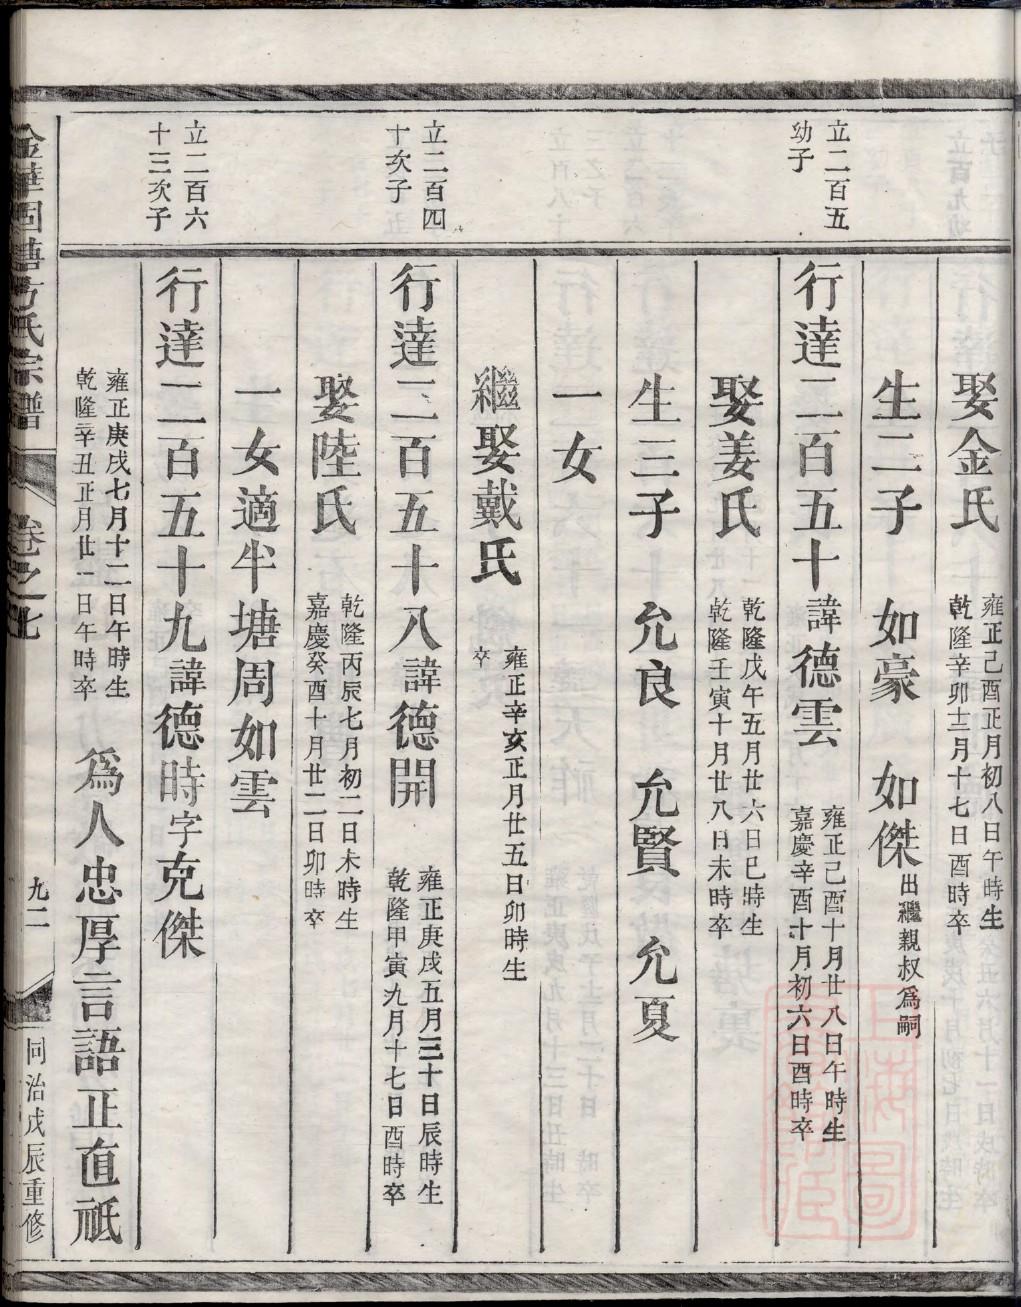 娶金氏
雍正己酉正月初八日午時生
乾隆辛卯十二月十七日酉時卒
生二子 如豪 如傑
出繼親叔爲嗣
立二百五
幼子
行達二百五十諱德雲
雍正己酉十月廿八日午時生
嘉慶辛酉十月初六日酉時卒
娶姜氏
乾隆戊午五月廿六日巳時生
乾隆壬寅十月廿八日未時卒
生三子 允良 允賢 允夏
一女
繼娶戴氏
雍正辛亥正月廿五日卯時生
卒
立二百四
十次子
行達二百五十八諱德開
雍正庚戌五月三十日辰時生
乾隆甲寅九月十七日酉時卒
娶陸氏
乾隆丙辰七月初二日未時生
嘉慶癸酉十月廿二日卯時卒
一女適半塘周如雲
立二百六
十三次子
行達二百五十九諱德時字克傑
雍正庚戌七月十二日午時生
乾隆辛丑正月廿一日午時卒
爲人忠厚言語正直祗
金華固塘方氏宗譜
卷之七
九二
同治戊辰重修